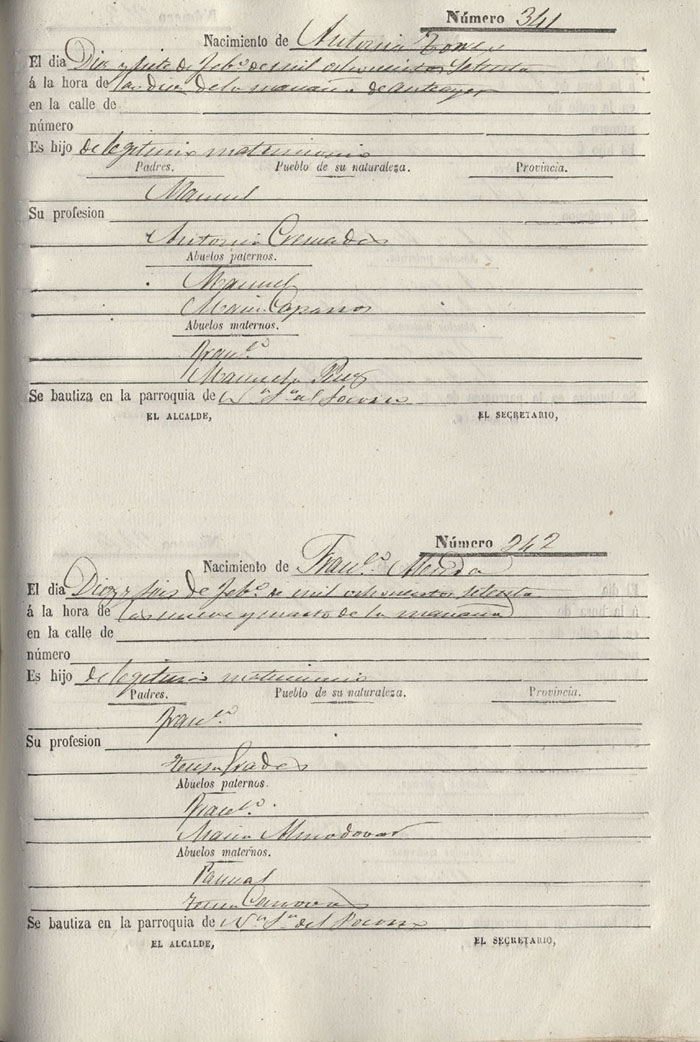 Número 341
Nacimiento de Antonia
El dia Diez y siete de Febº de mil ochocientos setenta
á la hora de las diez de la mañana de anteayer
en la calle de
número
Es hijo de legitimo matrimonio
Padres. Pueblo de su naturaleza. Provincia.
Manuel
Su profesion
Antonia Cremades
Abuelos paternos.
Manuel
Maria Caparros
Abuelos maternos.
Franco
Manuela
Se bautiza en la parroquia de Nª Sª del Socorro
EL ALCALDE, EL SECRETARIO,
Número 342
Nacimiento de Franco
El dia Diez y seis de Febº de mil ochocientos setenta
á la hora de las nueve y cuarto de la mañana
en la calle de
número
Es hijo de legitimo matrimonio
Padres. Pueblo de su naturaleza. Provincia.
Franco
Su profesion
Abuelos paternos.
Franco
Maria Almodovar
Abuelos maternos.
Pascual
Canovas
Se bautiza en la parroquia de Nª Sª del Socorro
EL ALCALDE, EL SECRETARIO,